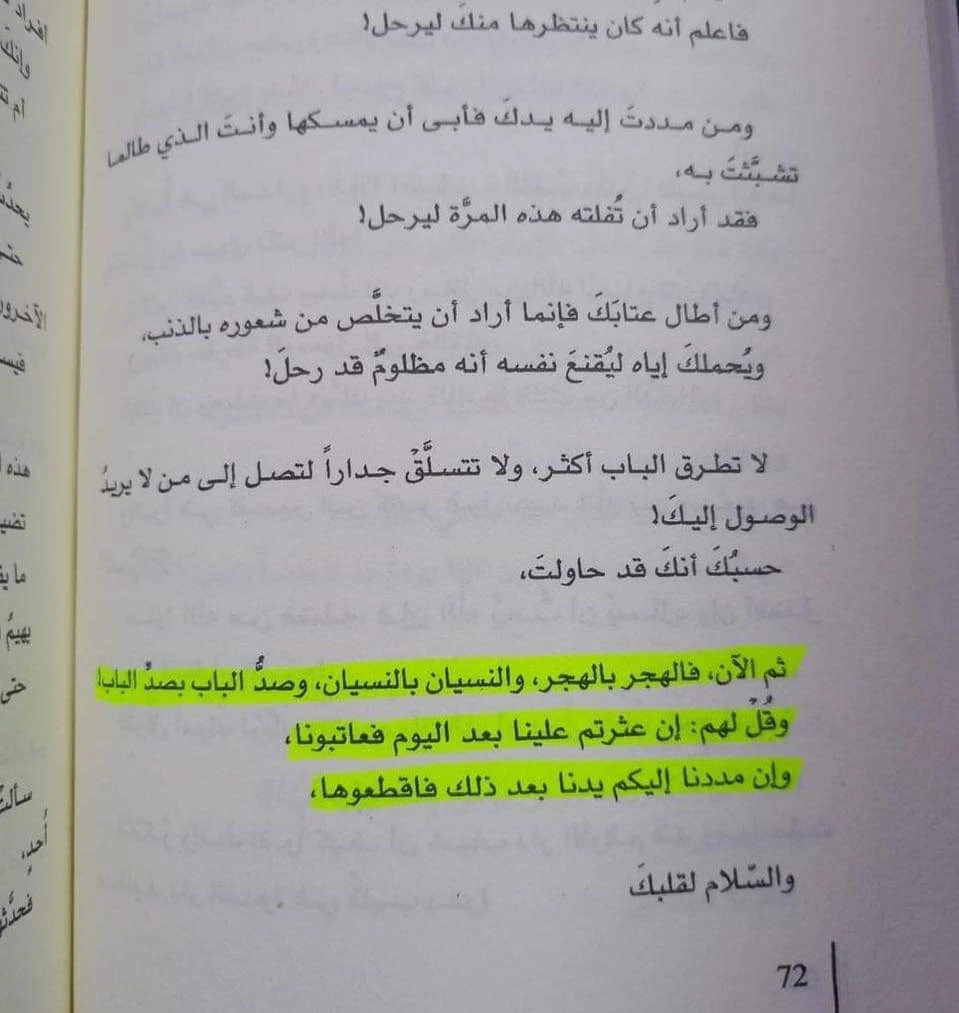 فاعلم أنه كان ينتظرها منكَ ليرحل!
ومن مددتَ إليه يدكَ فأبى أن يمسكها وأنتَ الذي طالما
تشبَّثتَ به،
فقد أراد أن تُفلته هذه المرَّة ليرحل!
ومن أطال عتابَكَ فإنما أراد أن يتخلَّص من شعوره بالذنب،
ويُحملكَ إياه ليُقنعَ نفسه أنه مظلومٌ قد رحلَ!
لا تطرق الباب أكثر، ولا تتسلَّقْ جداراً لتصل إلى من لا يريدُ
الوصول إليكَ!
حسبُكَ أنكَ قد حاولتَ،
ثم الآن، فالهجر بالهجر، والنسيان بالنسيان، وصدُّ الباب بصدِّ الباب!
وقُلْ لهم: إن عثرتم علينا بعد اليوم فعاتبونا،
وإن مددنا إليكم يدنا بعد ذلك فاقطعوها،
والسّلام لقلبكَ
72
افراد
وإنك
أم
حتى
الآخرون
هذه
يهيمُ
حتى
سألت
أحدٍ،